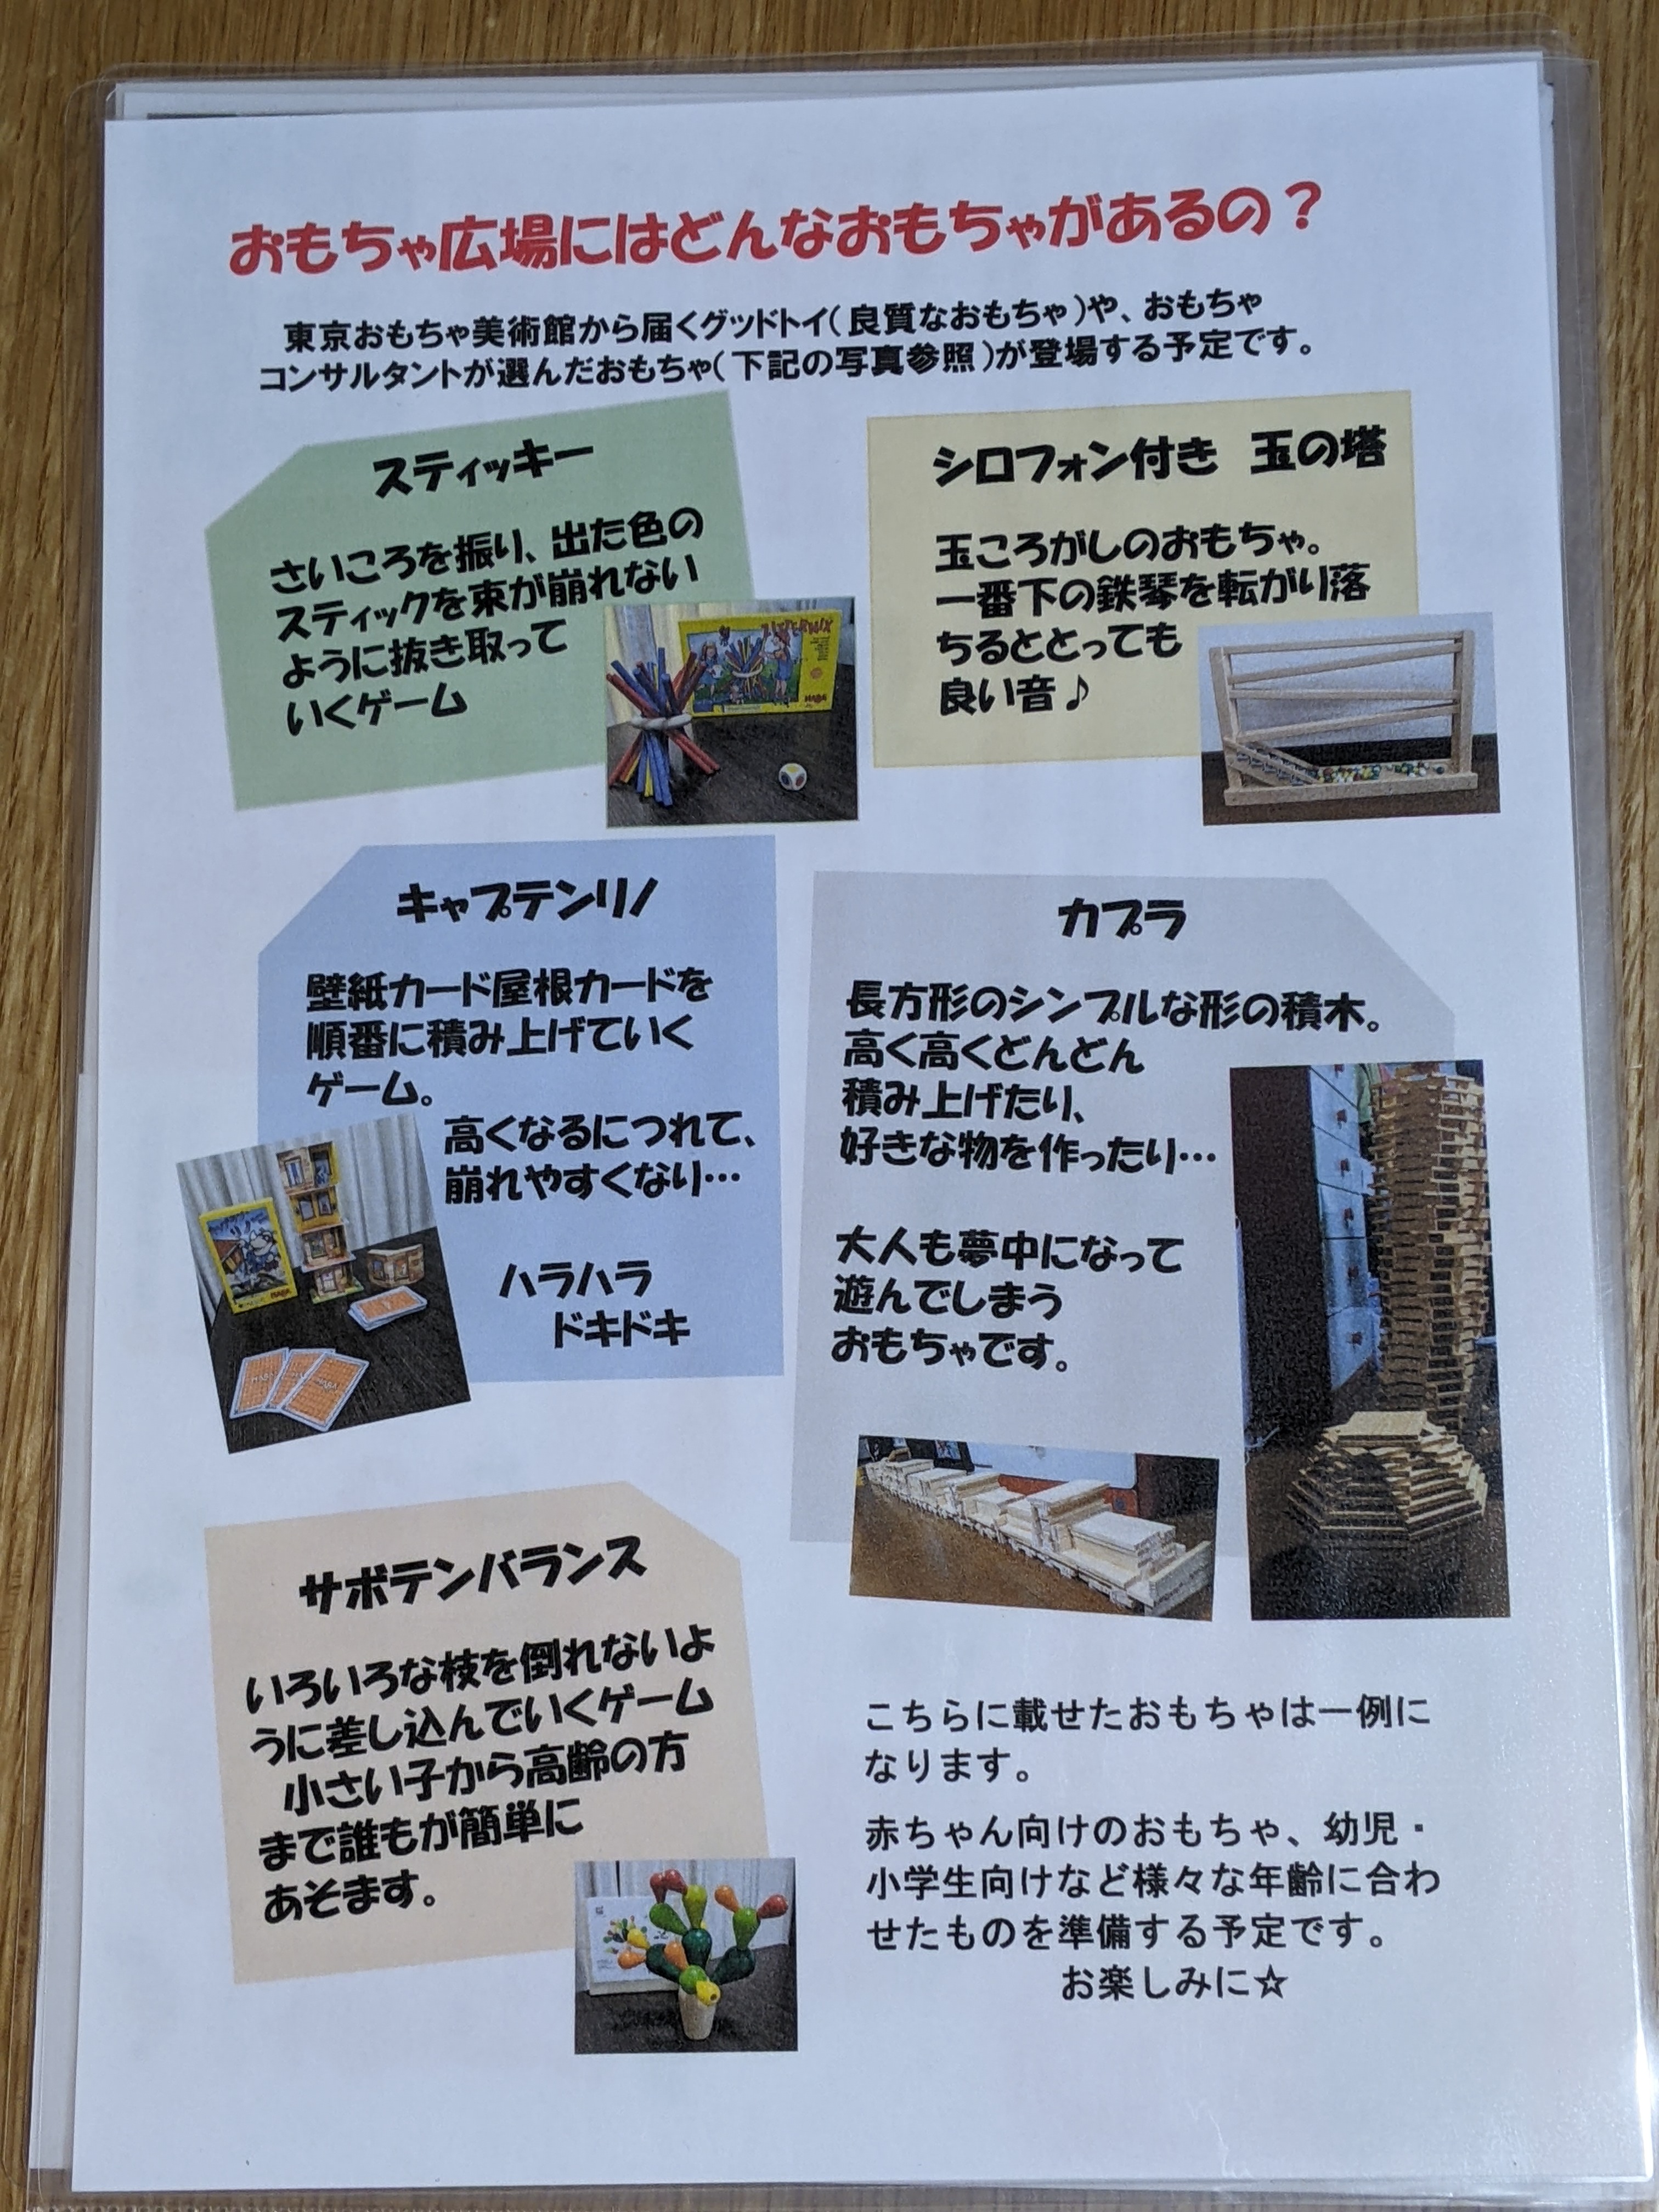 おもちゃ広場にはどんなおもちゃがあるの？
東京おもちゃ美術館から届くグッドトイ（良質なおもちゃ）や、おもちゃ
コンサルタントが選んだおもちゃ（下記の写真参照）が登場する予定です。
スティッキー
さいころを振り、出た色の
スティックを束が崩れない
ように抜き取って
いくゲーム
HABA
シロフォン付き　玉の塔
玉ころがしのおもちゃ。
一番下の鉄琴を転がり落
ちるととっても
良い音♪
キャプテンリノ
壁紙カード屋根カードを
順番に積み上げていく
ゲーム。
高くなるにつれて、
崩れやすくなり…
ハラハラ
ドキドキ
HABA
カプラ
長方形のシンプルな形の積木。
高く高くどんどん
積み上げたり、
好きな物を作ったり…
大人も夢中になって
遊んでしまう
おもちゃです。
サボテンバランス
いろいろな枝を倒れないよ
うに差し込んでいくゲーム
小さい子から高齢の方
まで誰もが簡単に
あそます。
こちらに載せたおもちゃは一例に
なります。
赤ちゃん向けのおもちゃ、幼児・
小学生向けなど様々な年齢に合わ
せたものを準備する予定です。
お楽しみに☆